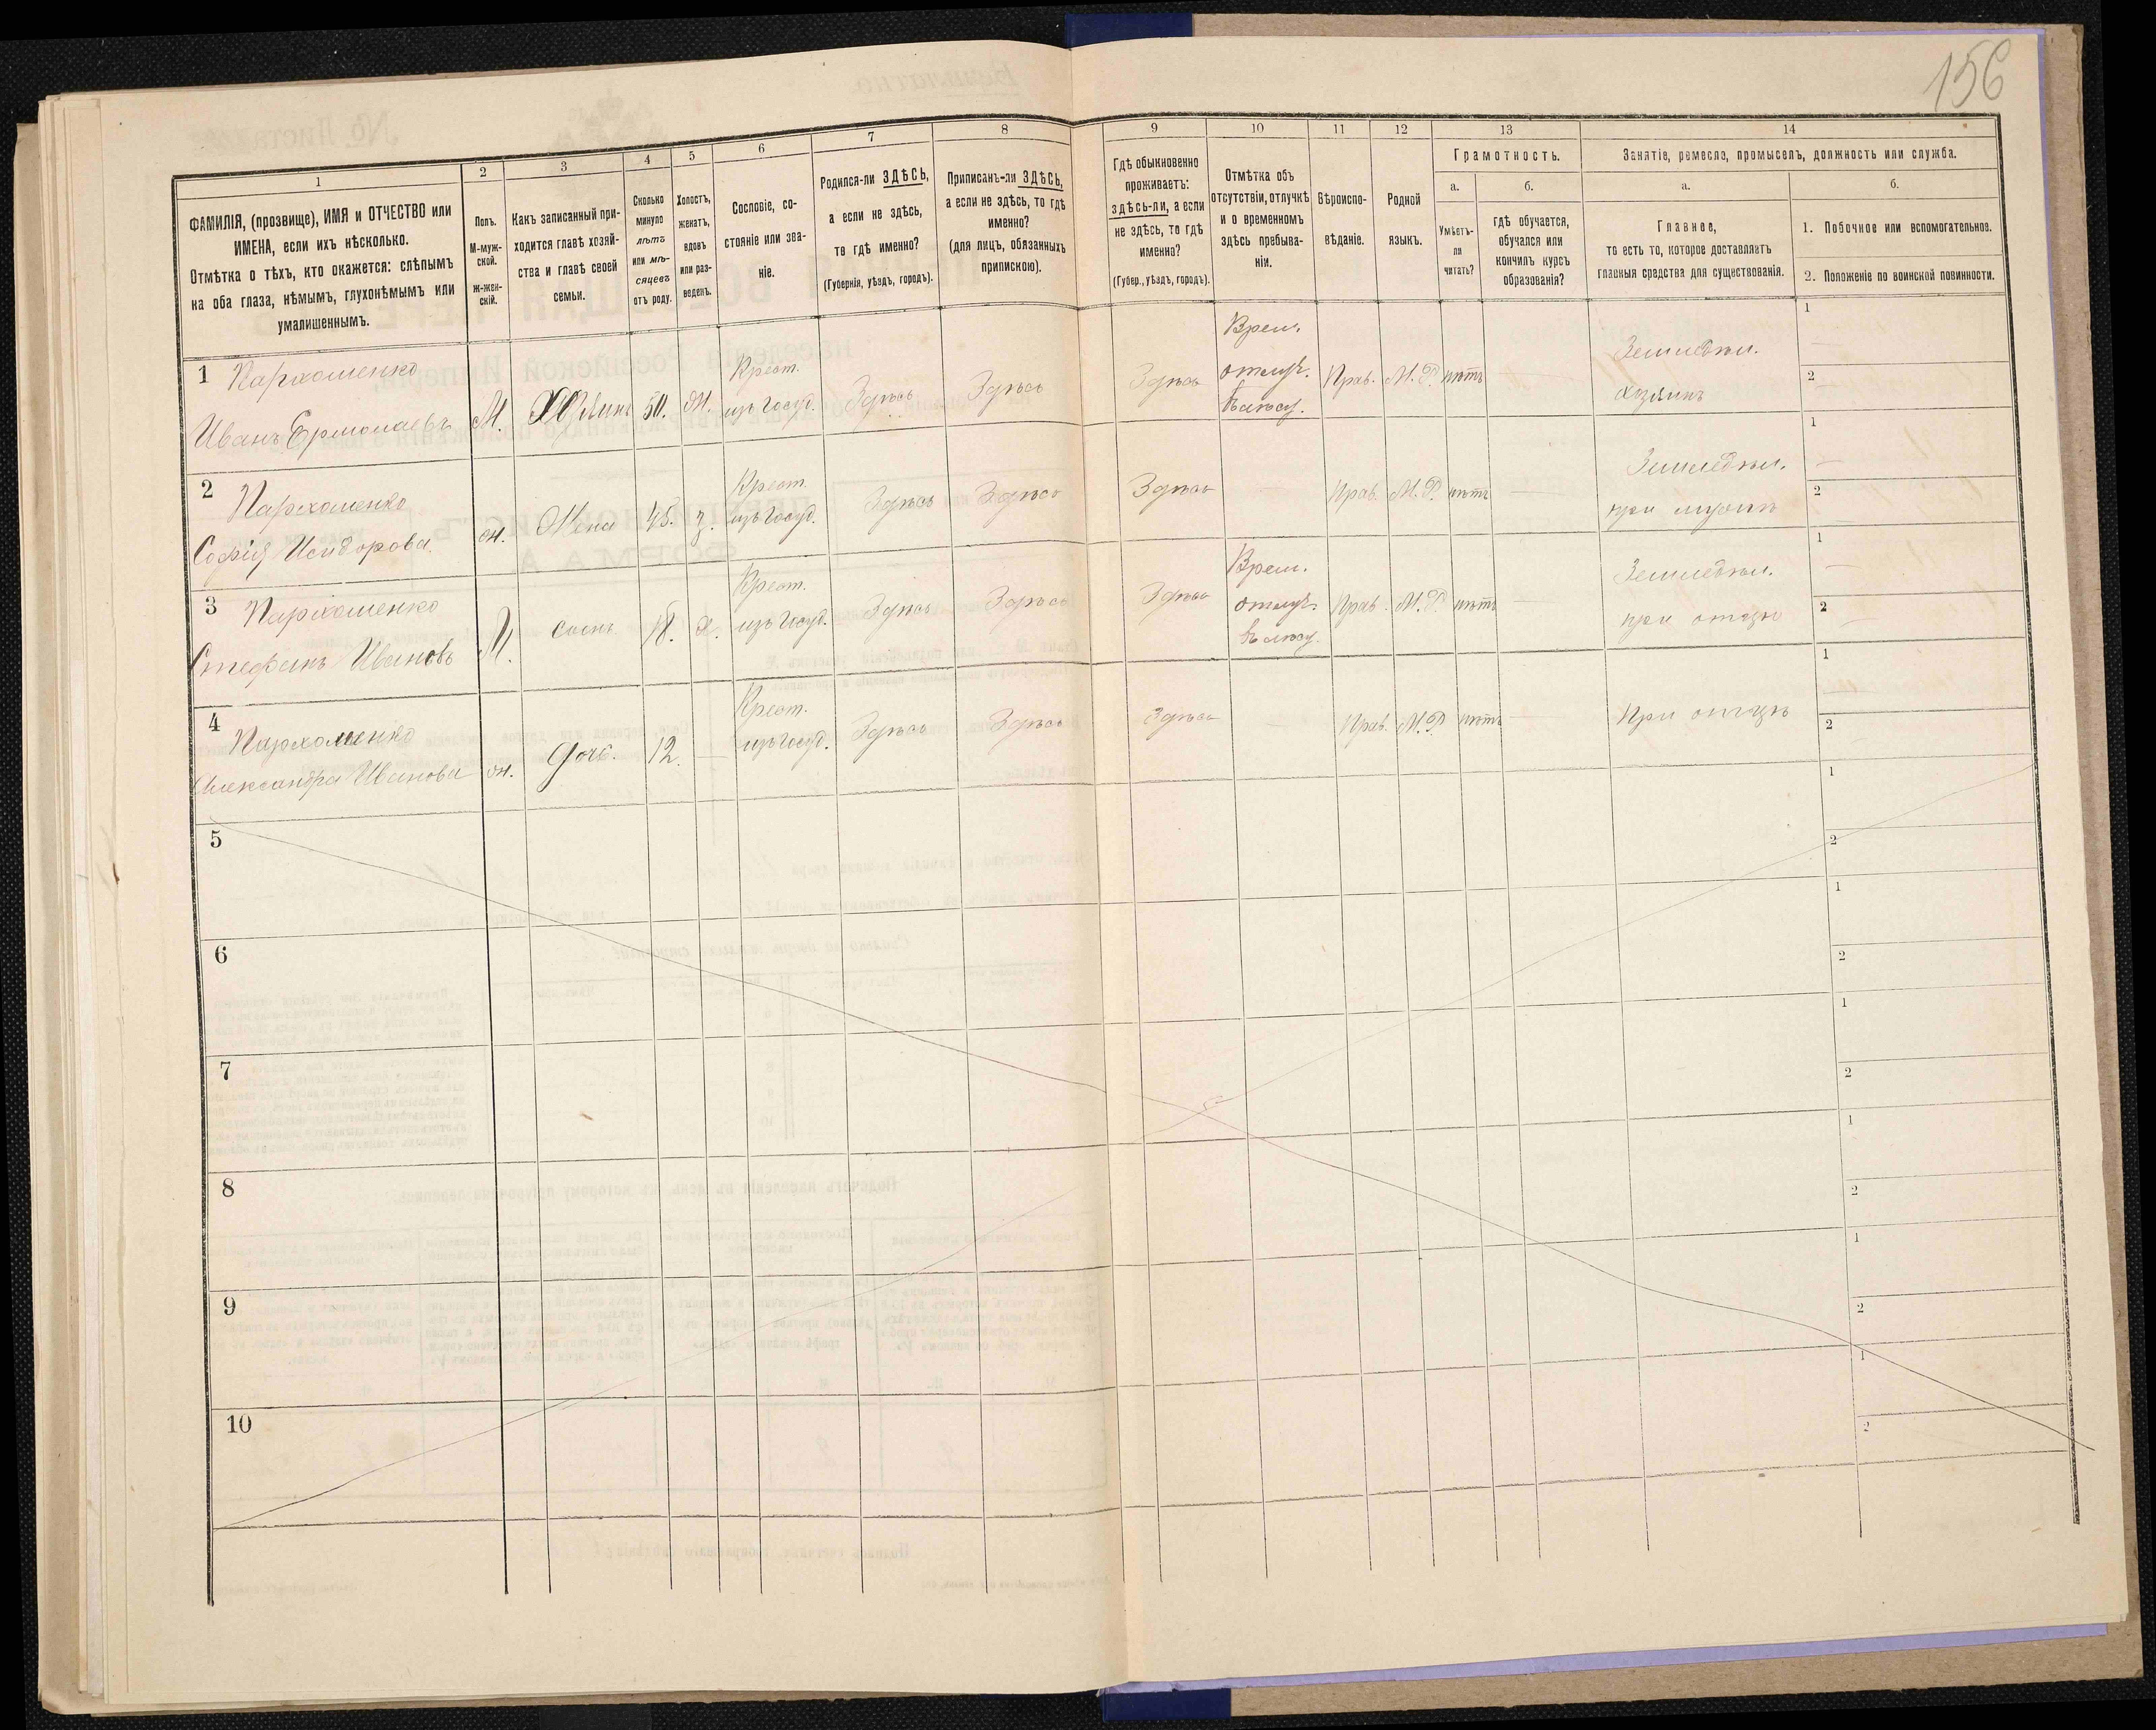 156
1
2
3
4
5
6
7
8
9
10
11
12
13
14
ФАМИЛІЯ, (прозвище), ИМЯ и ОТЧЕСТВО или
ИМЕНА, если ихъ нѣсколько.
Отмѣтка о тѣхъ, кто окажется: слѣпымъ
на оба глаза, нѣмымъ, глухонѣмымъ или
умалишеннымъ.
Полъ.
М-муж-
ской.
Ж-жен-
скій.
Какъ записанный при-
ходится главѣ хозяй-
ства и главѣ своей
семьи.
Сколько
минуло
лѣтъ
или мѣ-
сяцевъ
отъ роду.
Холостъ,
женатъ,
вдовъ
или раз-
веденъ.
Сословіе, со-
стояніе или зва-
ніе.
Родился-ли ЗДѢСЬ,
а если не здѣсь,
то гдѣ именно?
(Губернія, уѣздъ, городъ).
Приписанъ-ли ЗДѢСЬ,
а если не здѣсь, то гдѣ
именно?
(для лицъ, обязанныхъ
припискою).
Гдѣ обыкновенно
проживаетъ:
здѣсь-ли, а если
не здѣсь, то гдѣ
именно?
(Губер., уѣздъ, городъ).
Отмѣтка объ
отсутствіи, отлучкѣ
и о временномъ
здѣсь пребыва-
ніи.
Вѣроиспо-
вѣданіе.
Родной
языкъ.
Грамотность.
а.
Умѣетъ-
ли
читать?
б.
гдѣ обучается,
обучался или
кончилъ курсъ
образованія?
Занятіе, ремесло, промыселъ, должность или служба.
а.
Главное,
то есть то, которое доставляетъ
главныя средства для существованія.
б.
1. Побочное или вспомогательное.
2. Положеніе по воинской повинности.
1 Пархоменко
Иванъ Ермолаевъ
М.
Хозяинъ
50.
Ж.
Крест.
изъ госуд.
Здѣсь
Здѣсь
Здѣсь
Врем.
отлуч.
Прав.
М. Р.
нѣтъ
Земледѣл.
хозяинъ
1
2
2 Пархоменко
Софія Исидорова
ж.
Жена
45.
з.
Крест.
изъ госуд.
Здѣсь
Здѣсь
Здѣсь
Прав.
М. Р.
нѣтъ
Земледѣл.
при мужѣ
1
2
3 Пархоменко
Стефанъ Ивановъ
М.
сынъ
18.
х.
Крест.
изъ госуд.
Здѣсь
Здѣсь
Здѣсь
Врем.
отлуч.
Прав.
М. Р.
нѣтъ
Земледѣл.
при отцѣ
1
2
4 Пархоменко
Александра Иванова
ж.
дочь.
12.
Крест.
изъ госуд.
Здѣсь
Здѣсь
Здѣсь
Прав.
М. Р.
нѣтъ
При отцѣ
1
2
5
1
2
6
1
2
7
1
2
8
1
2
9
1
2
10
1
2